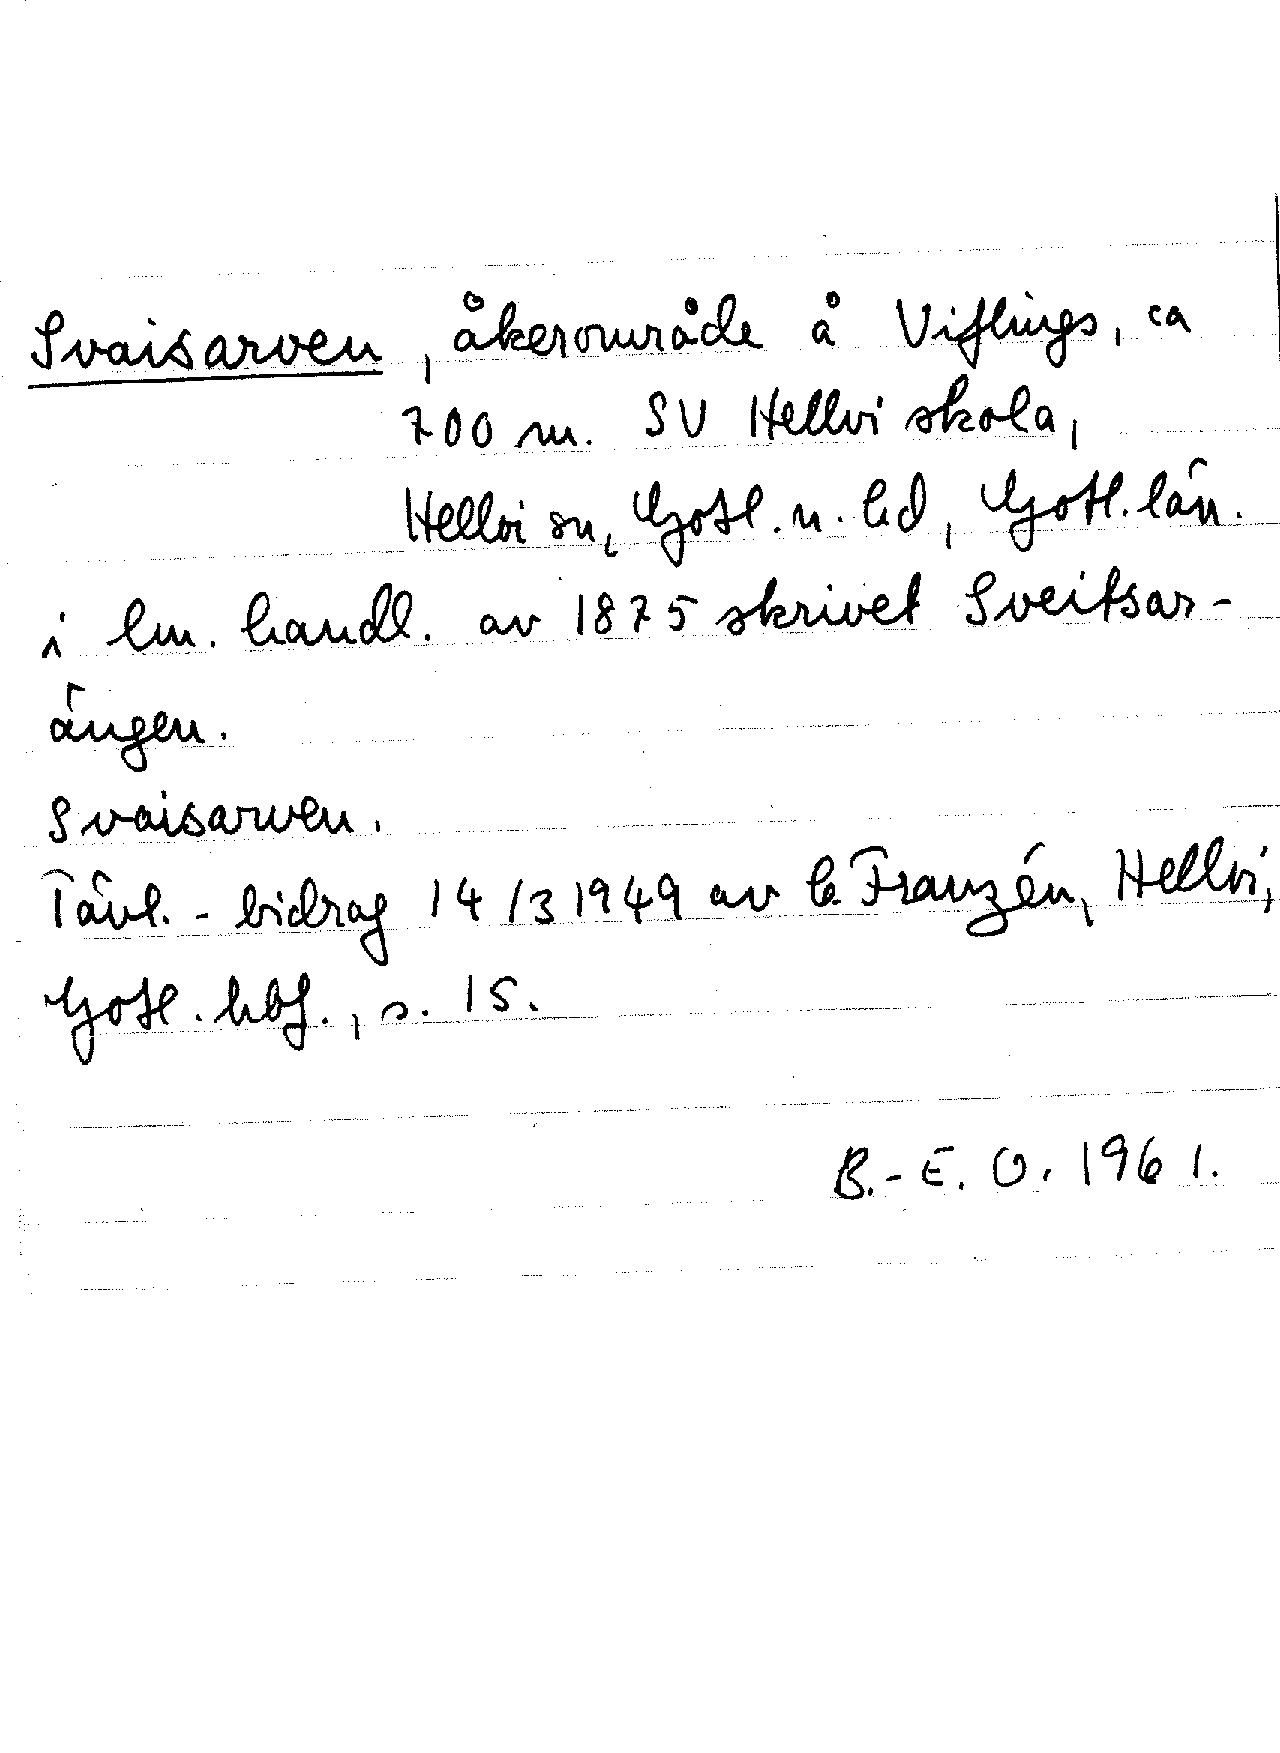 Svaisarven, åkerområde å Viflings, ca
700 m. SV Hellvi skola,
Hellvi sn, Gotl. n. hd, Gotl. län.
i lm. handl. av 1875 skrivet Sveitsar-
ängen.
Svaisarwen.
Tävl.-bidrag 14/3 1949 av b. Franzén, Hellvi,
Gotl. hbf., s. 15.
B.-E. O. 1961.